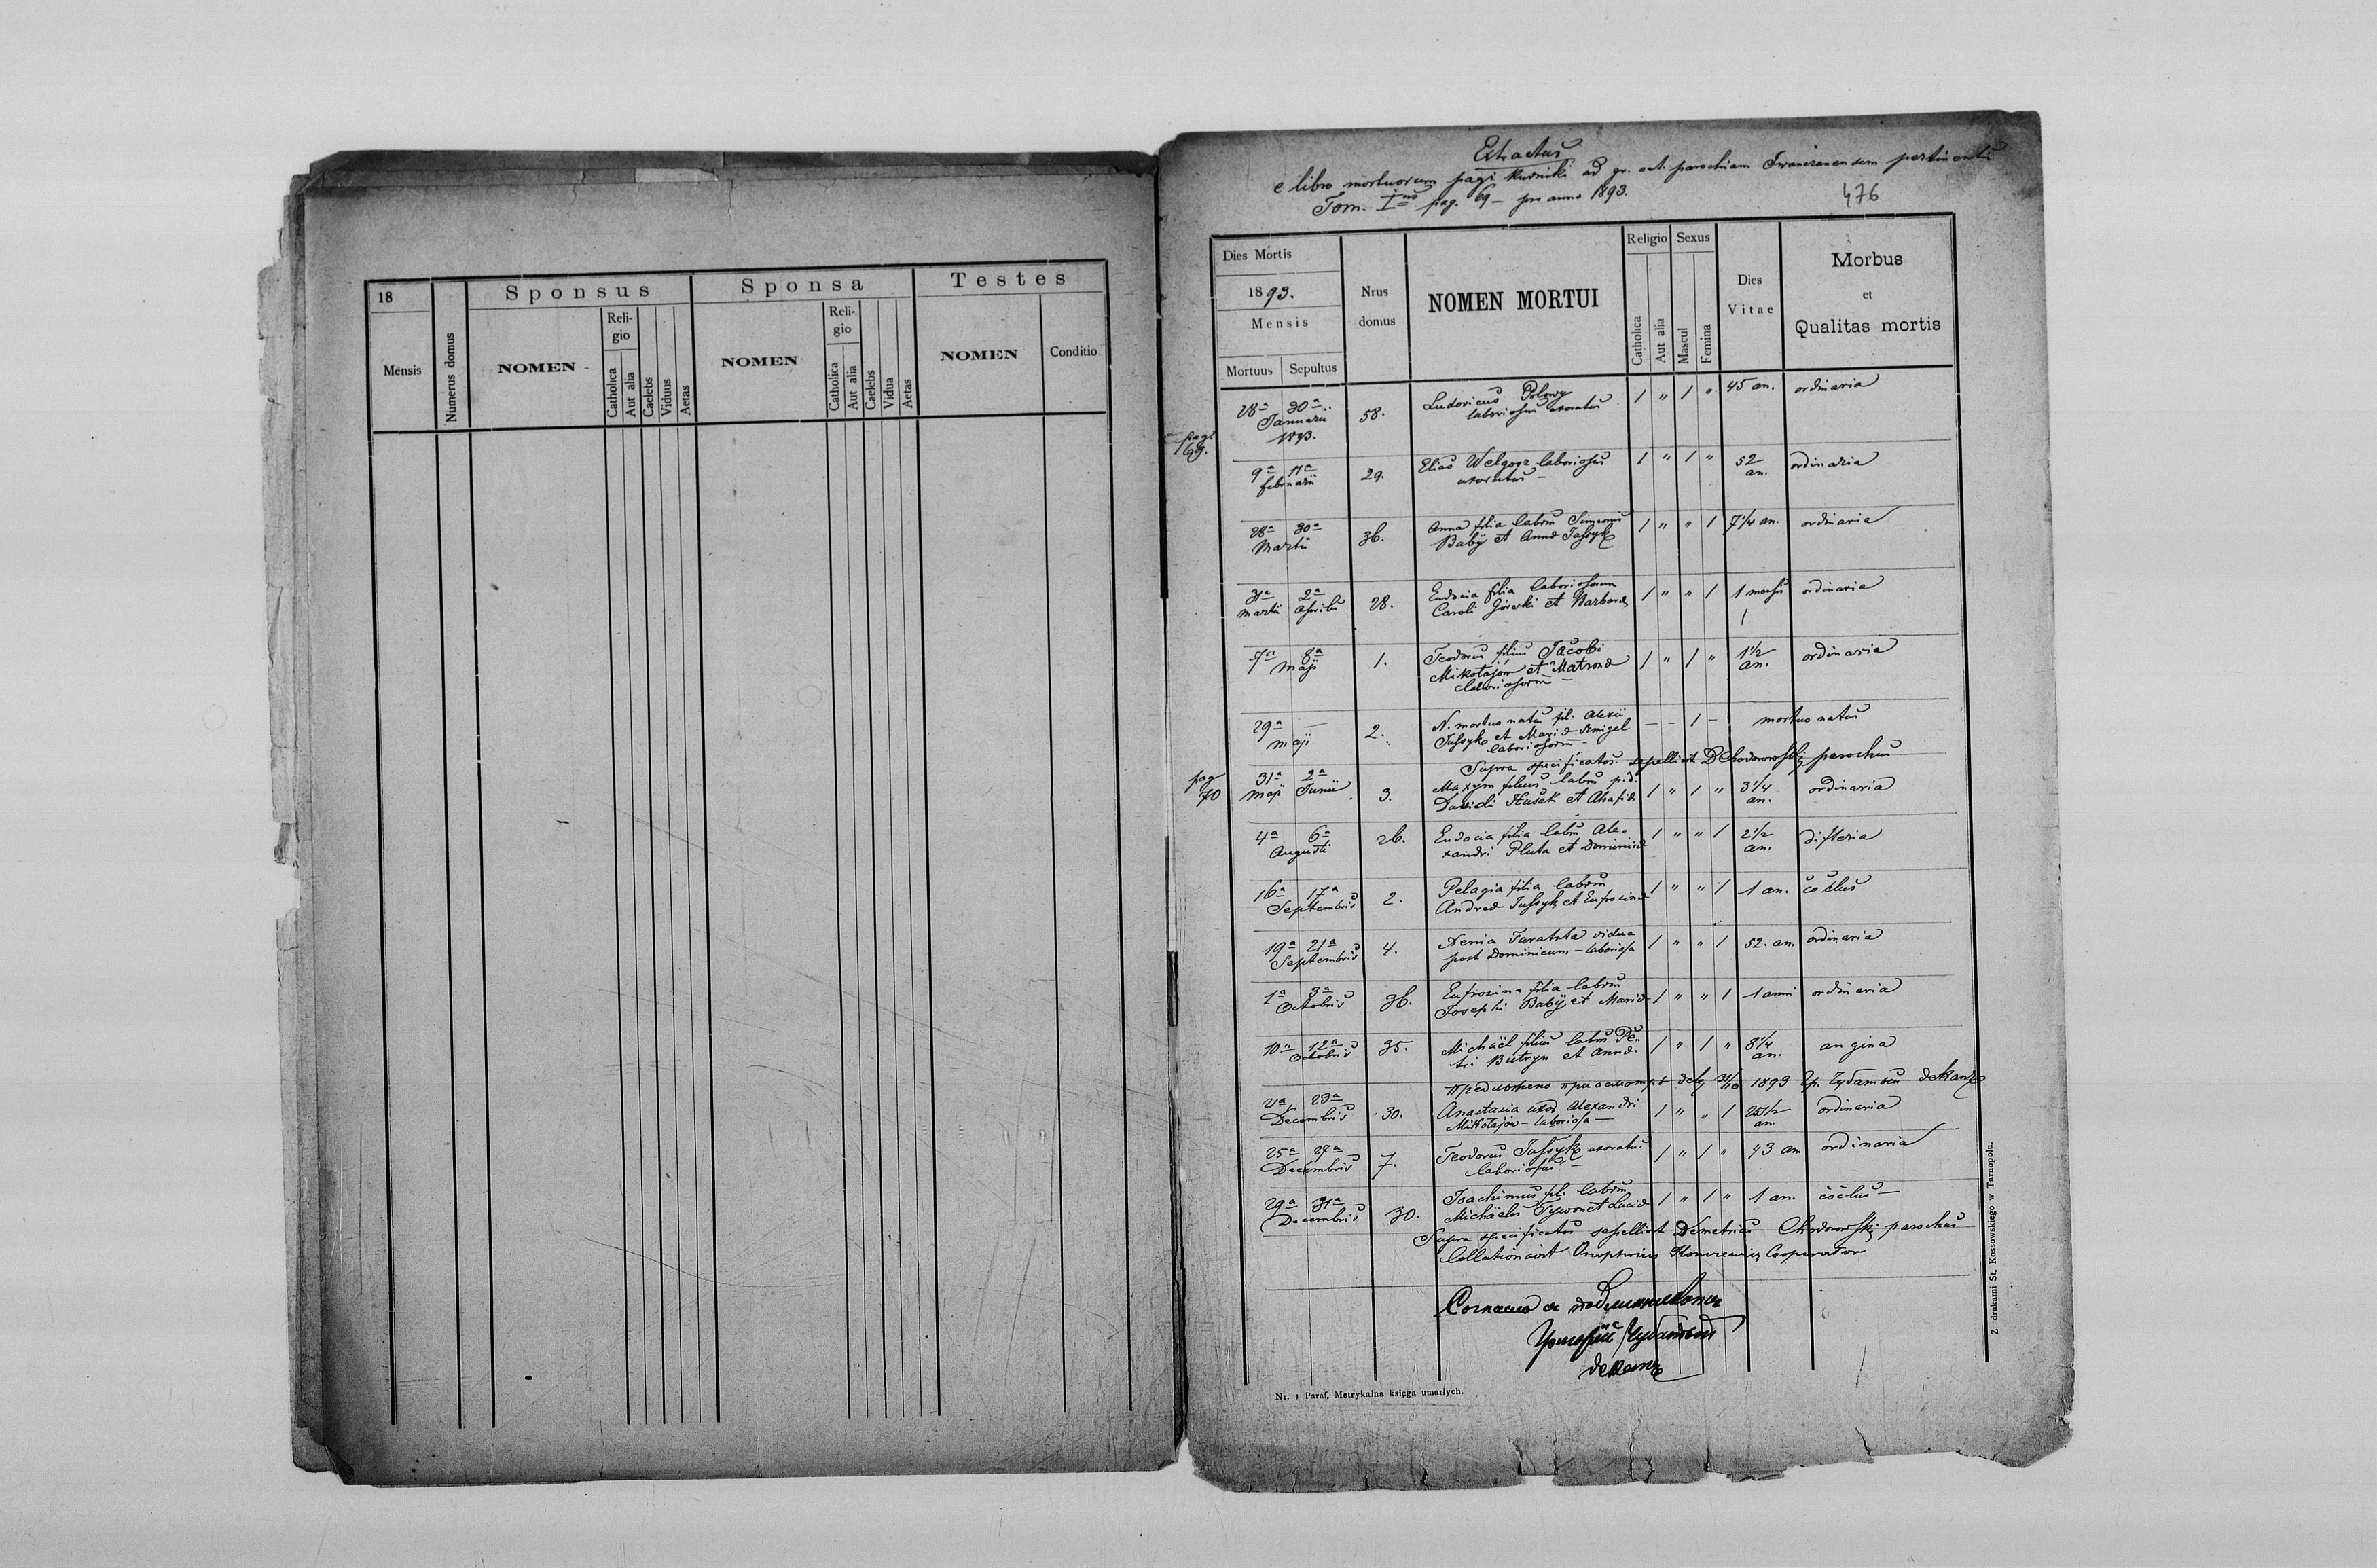 18
Mensis
Numerus domus
Sponsus
NOMEN
Religio
Catholica
Aut alia
Caelebs
Viduus
Aetas
Sponsa
NOMEN
Religio
Catholica
Aut alia
Caelebs
Vidua
Aetas
Testes
NOMEN
Conditio
Extractus
e libro mortuorum pagi Kurniki ad gr. cat. parochiam pertinentis
Tom. I pag. 69 – pro anno 1893.
476
Dies Mortis
1893.
Mensis
Mortuus Sepultus
Nrus domus
NOMEN MORTUI
Religio
Catholica
Aut alia
Sexus
Mascul
Femina
Dies Vitae
Morbus
et
Qualitas mortis
pag.
69.
28a 30a 58. Ludovicus 1 " 1 " 45 an. ordinaria
Januarii laboriosus uxoratus
1893.
9a 11a 29. Elias Welgosz laboriosus 1 " 1 " 52 an. ordinaria
februarii uxoratus –
28a 30a 36. Anna filia labrm Simeonis 1 " " 1 7 1/4 an. ordinaria
Martii Babij et Anna Jussyk
31a 2a 28. Eudocia filia laboriosorum 1 " " 1 1 mensis ordinaria
Martii Aprilis Caroli Górski et Barbara
7a 8a 1. Teodorus filius Jacobi 1 " 1 " 1 1/2 an. ordinaria
Maji Mikołajów et Matrona
laboriosorum –
29a – 2. N. mortuo natus fil. Alexii – – 1 – mortuo natus
Maji Jussyk et Maria
laboriosorum –
Supra specificatos sepellivit D Chodorowski parochus
pag
70
31a 2a 3. Maxym filius labrm 1 " 1 " 3 1/4 an. ordinaria
Maji Junii Davidi Husak et Ahafia
4a 6a 26. Eudocia filia labrm Ale- 1 " " 1 2 1/2 an. difteria
Augusti xandri Pluta et Dominica
16a 17a 2. Pelagia filia labrm 1 " " 1 1 an.
Septembris Andreae Jussyk et Eufrosina
19a 21a 4. Taratuta vidua 1 " " 1 52. an. ordinaria
Septembris post Dominicum – laboriosa
1a 3a 36. Eufrosina filia labrm 1 " " 1 1 anni ordinaria
Octobris Josephi Babij et Maria
10a 12a 35. Michaël filius labrm Pe- 1 " 1 " 8 1/4 an. angina
Octobris tri Butryn et Anna
1893 деканъ
21a 23a 30. Anastasia uxor Alexandri 1 " " 1 25 1/2 an. ordinaria
Decembris Mikołajów – laboriosa –
25a 27a 7. Teodorus Jussyk uxoratus 1 " 1 " 43 an ordinaria
Decembris laboriosus –
29a 31a 30. Joachimus fil. labrm 1 " 1 " 1 an.
Decembris Michaëlis et Lucia
Supra specificatos sepellivit Demetrius Chodorowski parochus
Collationavit Cooperator
деканъ
Nr. 1 Paraf. Metrykalna księga umarłych.
Z drukarni St. Kossowskiego w Tarnopolu.